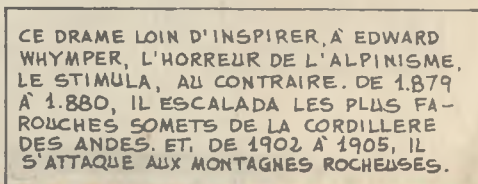 CE DRAME LOIN D'INSPIRER, À EDWARD
WHYMPER, L'HORREUR DE L'ALPINISME,
LE STIMULA, AU CONTRAIRE. DE 1.879
À 1.880, IL ESCALADA LES PLUS FA-
ROUCHES SOMETS DE LA CORDILLERE
DES ANDES. ET, DE 1902 À 1905, IL
S'ATTAQUE AUX MONTAGNES ROCHEUSES.